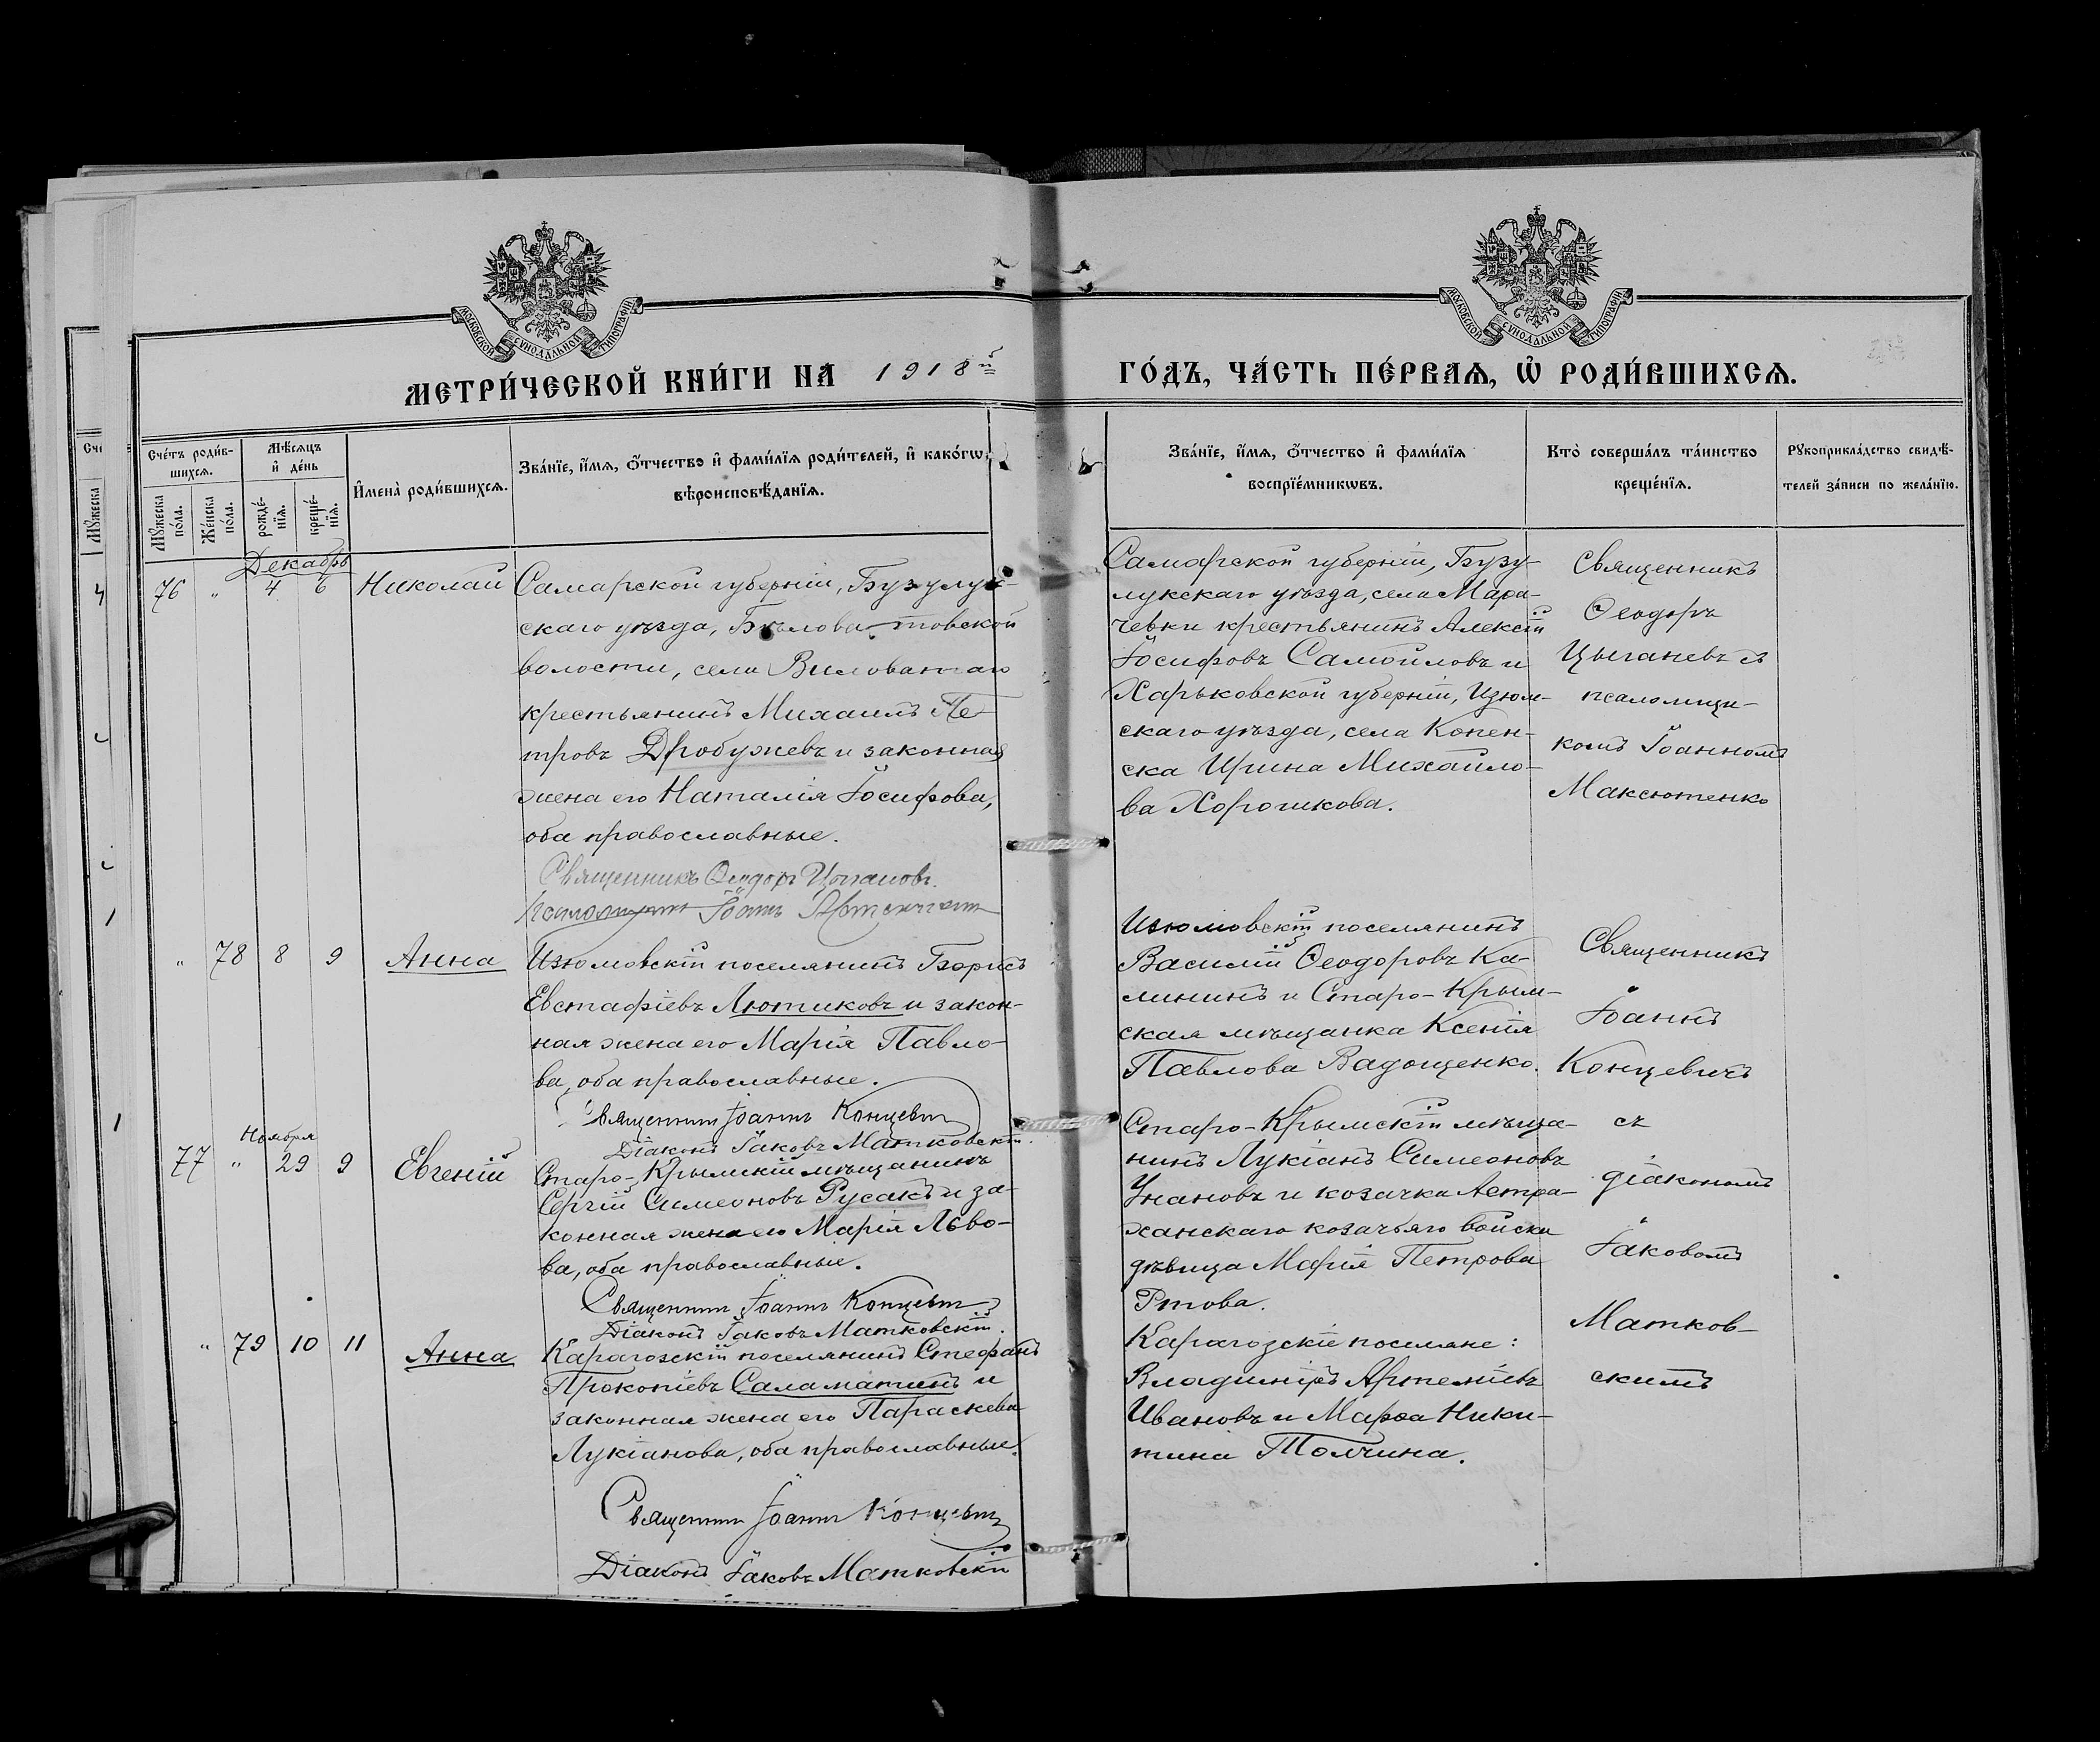 МОСКОВСКОЙ СѴНОДАЛЬНОЙ ТИПОГРАФІИ
МОСКОВСКОЙ СѴНОДАЛЬНОЙ ТИПОГРАФІИ
МЕТРИ́ЧЕСКОЙ КНИ́ГИ НА 1918й
ГО́ДЪ, ЧА́СТЬ ПЕ́РВАѦ, Ѡ҆ РОДИ́ВШИХСѦ.
Сче́тъ роди́в-
шихсѧ.
Мꙋ́жеска по́ла.
Же́нска по́ла.
Мѣ́сѧцъ
и҆ де́нь
рожде́-
нїѧ.
креще́-
нїѧ.
И҆мена̀ роди́вшихсѧ.
Зва́нїе, и҆́мѧ, ѻ҆́тчество и҆ фами́лїѧ роди́телей, и҆ како́гѡ
вѣроисповѣ́данїѧ.
Зва́нїе, и҆́мѧ, ѻ҆́тчество и҆ фами́лїѧ
воспрїе́мникѡвъ.
Кто̀ соверша́лъ та́инство
креще́нїѧ.
Рꙋкоприкла́дство свидѣ́-
телей за́писи по жела́нїю.
Декабрь
76 " 4 6 Николай
Самарской губерніи, Бузулук-
скаго уѣзда,
волости, села Виловатаго
крестьянинъ Михаилъ Пе-
тровъ Дробужевъ и законная
жена его Наталія Іосифова,
оба православные.
Священникъ Ѳеодоръ Цыгановъ.
Самарской губерніи, Бузу-
лукскаго уѣзда, села Мара-
чевки крестьянинъ Алексій
Іосифовъ Самойловъ и
Харьковской губерніи, Изюм-
скаго уѣзда, села Копен-
ска Ирина Михайло-
ва Хорошкова.
Священникъ
Ѳеодоръ
Цыганевъ съ
псаломщи-
комъ Іоанномъ
Максютенко
" 78 8 9 Анна
Изюмовскій поселянинъ Борисъ
Евстафіевъ Лютиковъ и закон-
ная жена его Марія Павло-
ва, оба православные.
Священникъ Іоаннъ Концевичъ
Діаконъ Іаковъ Матковскій.
Изюмовскій поселянинъ
Василій Ѳеодоровъ Ка-
лининъ и Старо-Крым-
ская мѣщанка Ксенія
Павлова Вадощенко.
Священникъ
Іоаннъ
Концевичъ
съ
діакономъ
Іаковомъ
Матков-
скимъ
Ноября
77 " 29 9 Евгеній
Старо-Крымскій мѣщанинъ
Сергій Симеоновъ Русакъ и за-
конная жена его Марія Льво-
ва, оба православные.
Священникъ Іоаннъ Концевичъ
Діаконъ Іаковъ Матковскій.
Старо-Крымскій мѣща-
нинъ Лукіанъ Симеоновъ
и козачка Астра-
ханскаго козачьяго войска
дѣвица Марія Петрова
Ртова.
" 79 10 11 Анна
Карагозскій поселянинъ Стефанъ
Прокопіевъ Саламатинъ и
законная жена его Параскева
Лукіанова, оба православные.
Священникъ Іоаннъ Концевичъ
Діаконъ Іаковъ Матковскій
Карагозскіе поселяне:
Владиміръ Артеміевъ
Ивановъ и Марѳа Ники-
тина Толчина.